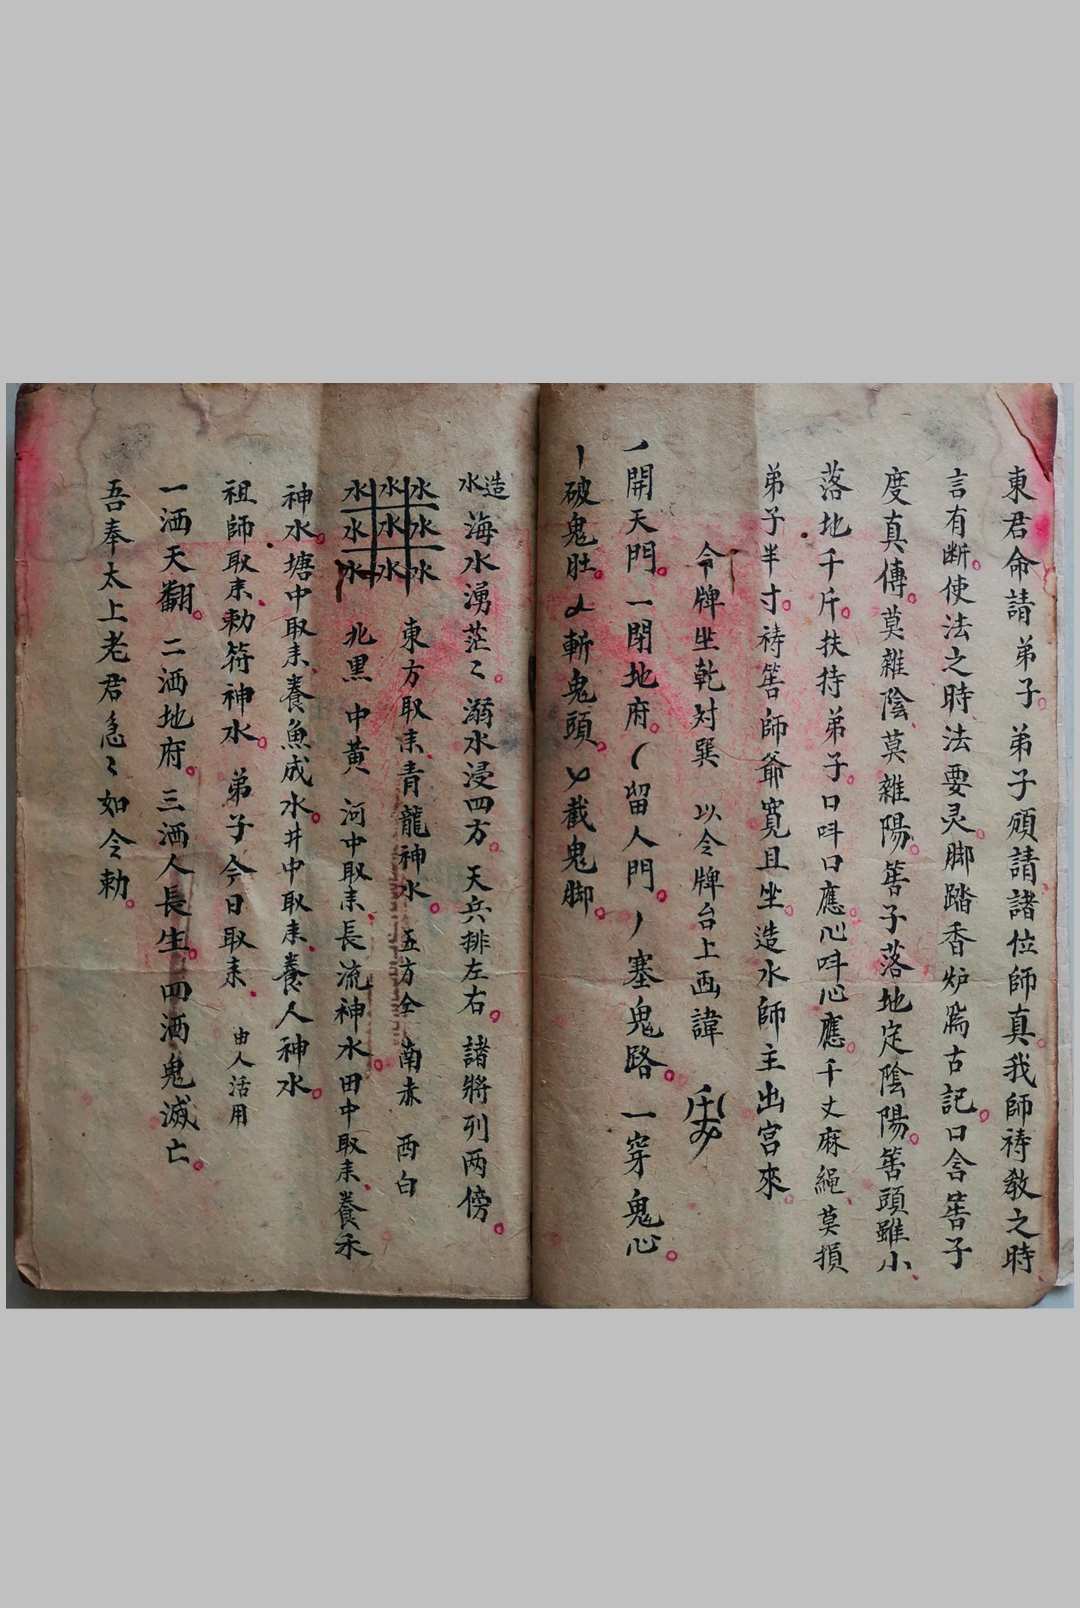 東君命請弟子。弟子頋請諸位師真。我師祷教之時
言有断。使法之時法要灵。脚踏香炉為古記。口含筶子
度真傳。莫雜陰、莫雜陽。筶子落地定陰陽。筶頭雖小、
落地千斤。扶持弟子。口呌口應。心呌心應。千丈麻繩、莫損
弟子半寸。祷筶師爺寛且坐。造水師主出宮來。
令牌坐乾対巽 以令牌台上画諱
開天門。一閉地府。留人門。塞鬼路。一穿鬼心。
破鬼肚。斬鬼頭。截鬼脚。
造水 海水湧茫〻。溺水浸四方。天兵排左右。諸將列两傍。
水水水
水水水
水水水
東方取来、青龍神水。五方全 南赤 西白
北黑 中黄 河中取来、長流神水。田中取来、養禾
神水。塘中取来、養魚成水。井中取来、養人神水。
祖師取来、勅符神水。弟子今日取来、 由人活用
一洒天翻。二洒地府。三洒人長生。四洒鬼滅亡。
吾奉太上老君急〻如令勅。